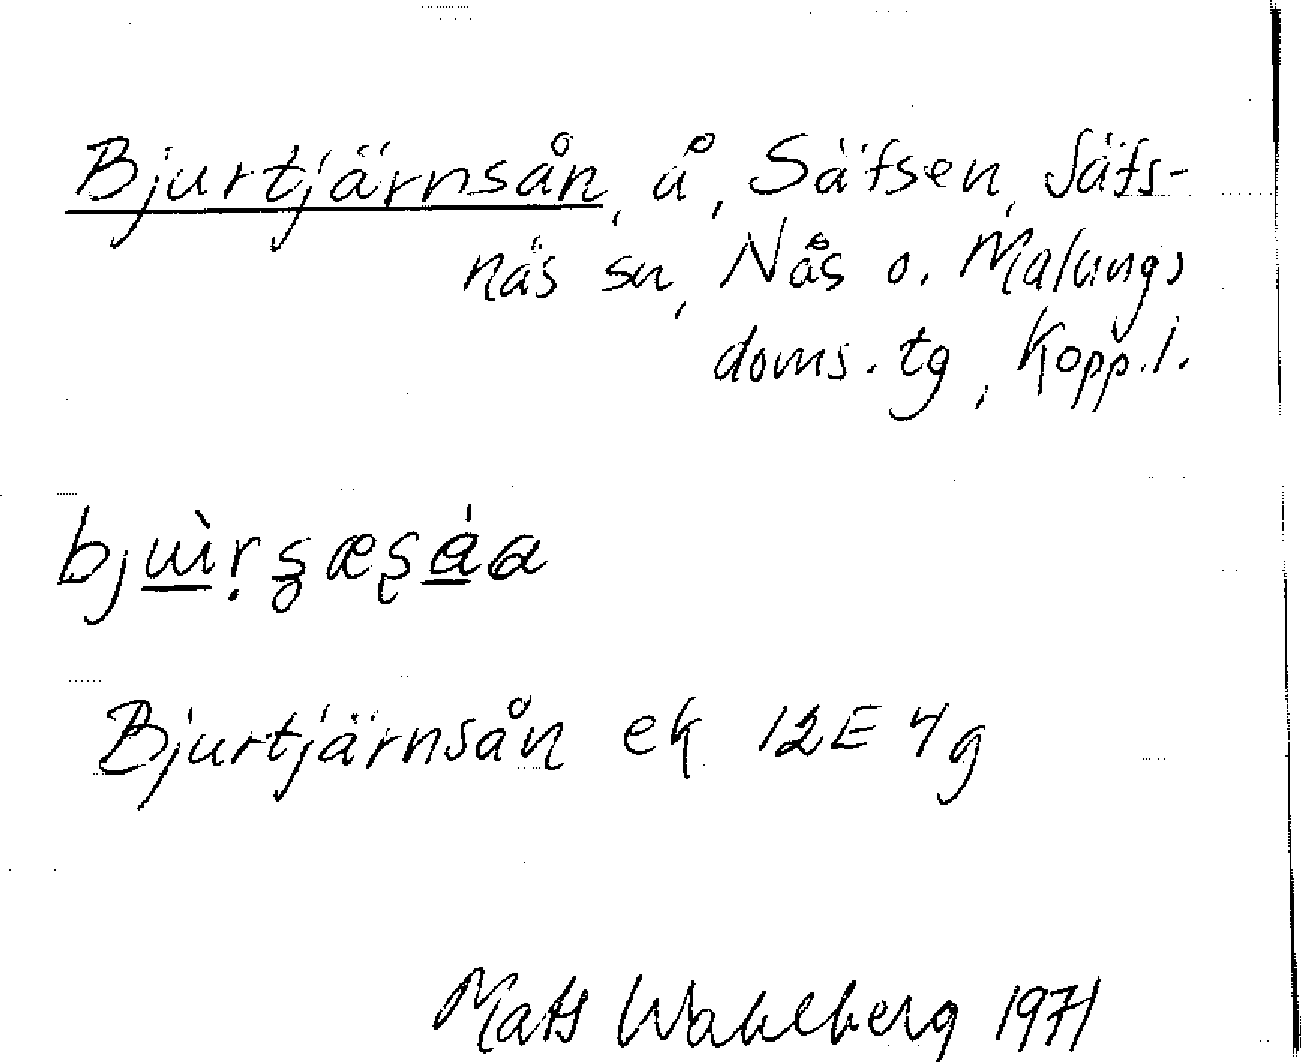 Bjurtjärnsån, å, Säfsen, Säfs-
näs sn, Nås o. Malungs
doms. tg, Kopp. l.
Bjurtjärnsån ek 12E 4g
Mats Wahlberg 1971